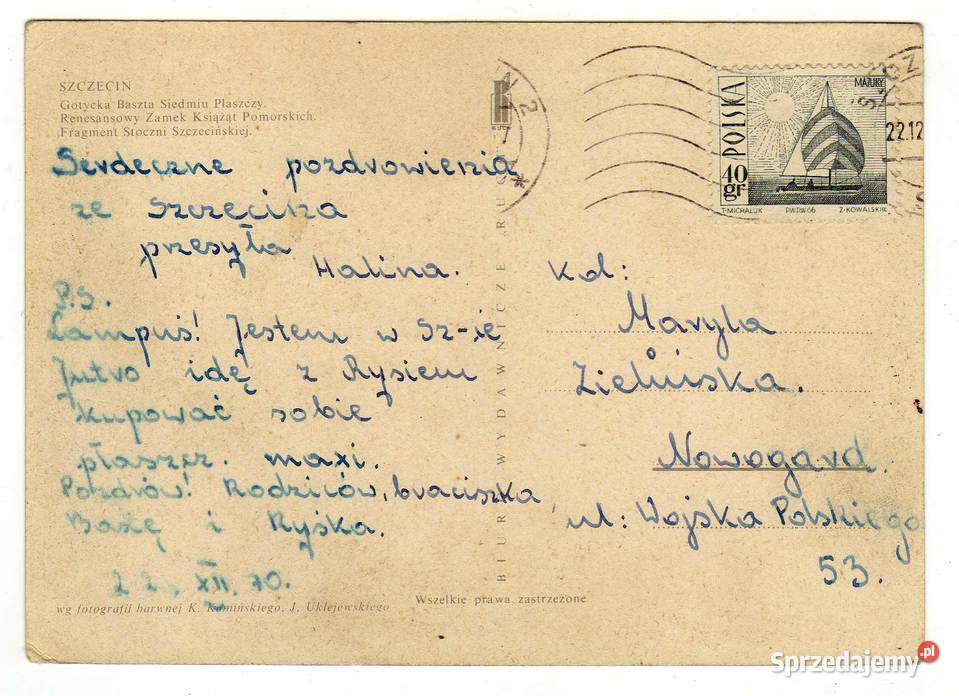 SZCZECIN
Gotycka Baszta Siedmiu Płaszczy.
Renesansowy Zamek Książąt Pomorskich.
Fragment Stoczni Szczecińskiej.
Serdeczne pozdrowienia
ze Szczęcina
przesyła
Halina.
P.S.
Lampuś! Jestem w Sz-ie
Jutro idę z Rysiem
kupować sobie
płaszcz. maxi.
Pozdrów! Rodziców, braciszka,
Basię i Ryśka.
22. XII. 70.
wg fotografii barwnej K. Kamińskiego, J. Uklejewskiego
BIURO WYDAWNICZE RUCH
RUCH
Wszelkie prawa zastrzeżone
POLSKA
40 gr
MAZURY
T. MICHALUK PWPW 66 Z. KOWALSKI
22.12
Kol:
Maryla
Zielińska.
Nowogard.
ul: Wojska Polskiego
53.
Sprzedajemy.pl